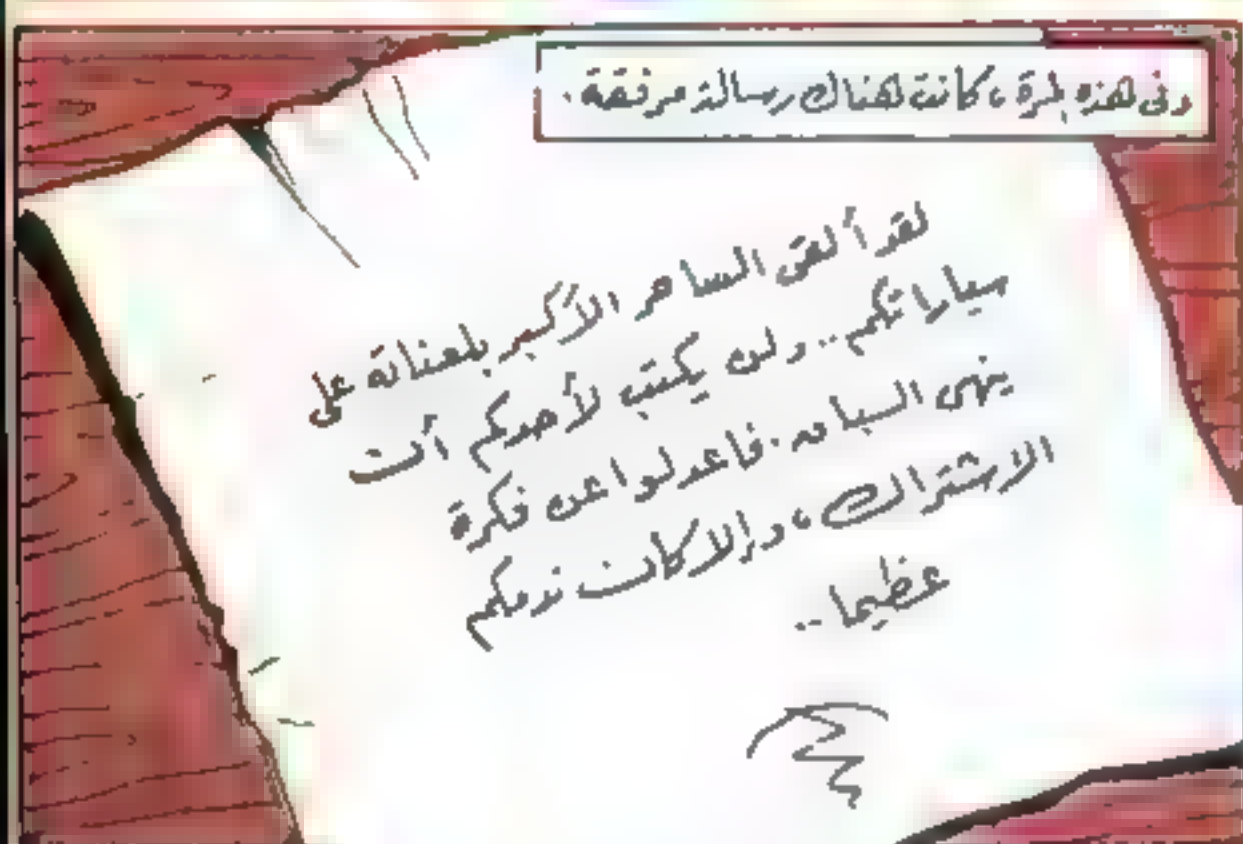 وفى هذه المرة، كانت هناك رسالة مرفقة.
لقد ألقى الساحر الأكبر بلعناته على
سياراتكم.. ولن يكتب لأحدكم أن
ينهى السباق. فاعدلوا عن فكرة
الاشتراك، وإلا كان ندمكم
عظيما..